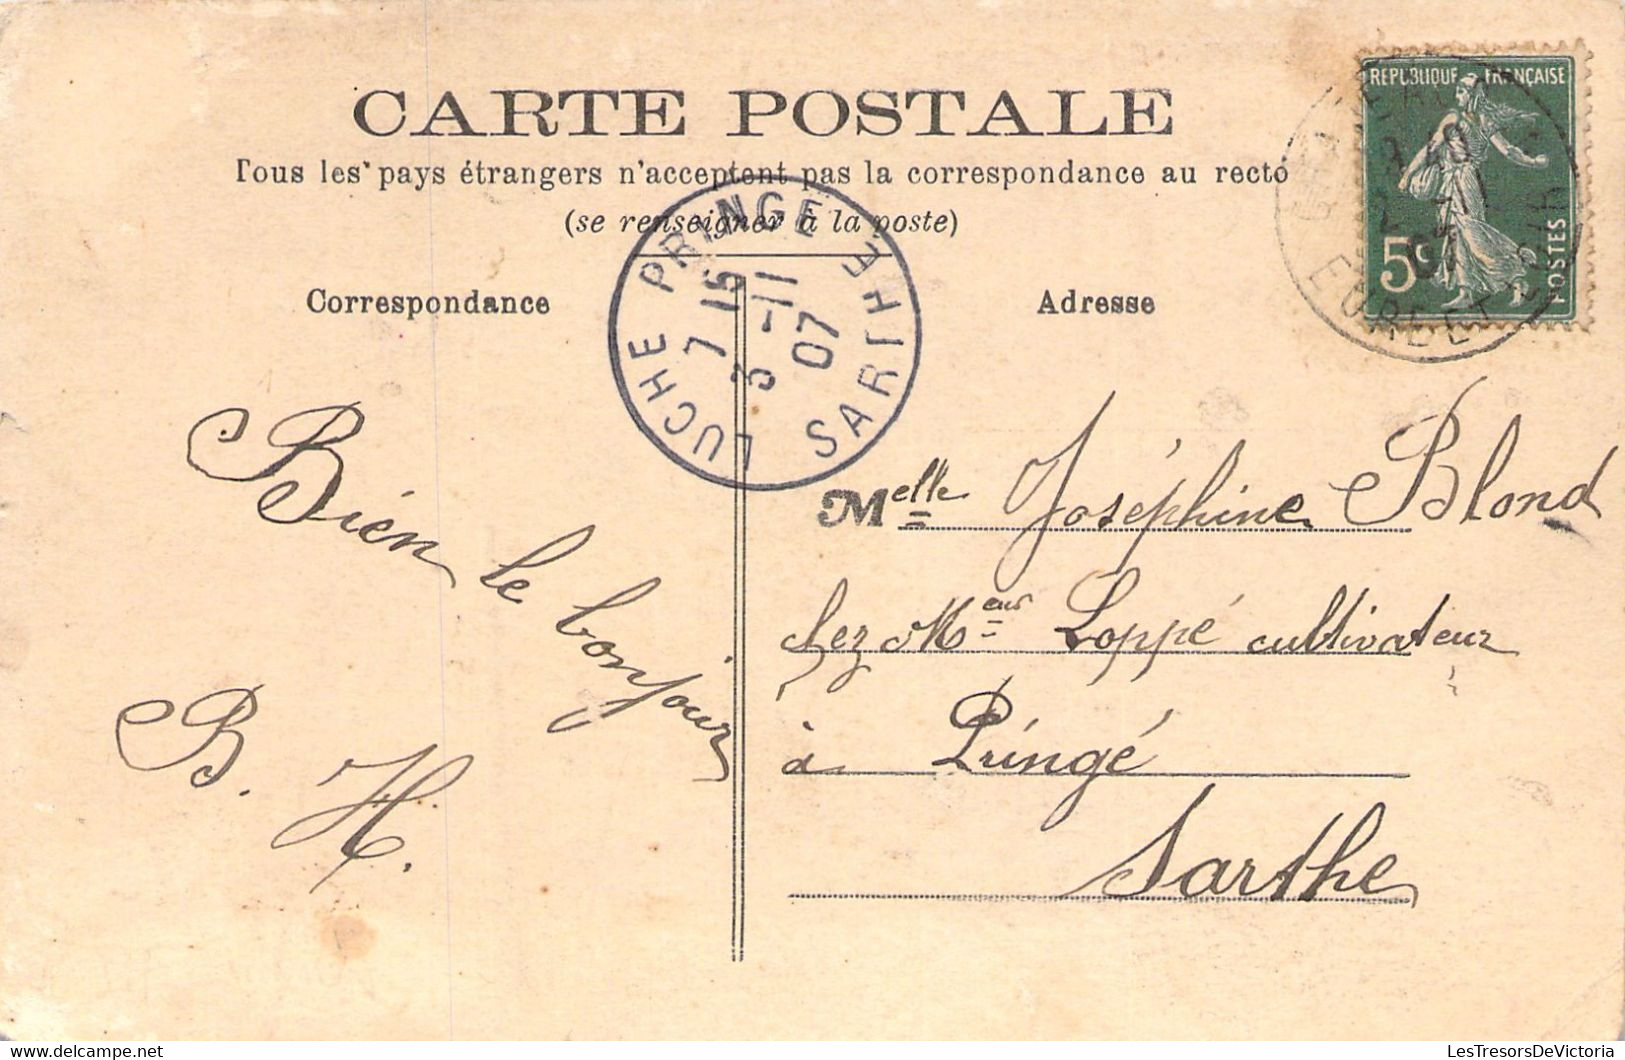 CARTE POSTALE
Tous les pays étrangers n'acceptent pas la correspondance au recto
(se renseigner à la poste)
Correspondance
Adresse
REPUBLIQUE FRANÇAISE
5c
POSTES
EURE ET
LUCHE PRINGE
SARTHE
7 15
3 -11
07
Bien le bonjour
B. H.
Melle Joséphine Blond
chez Meur Loppé cultivateur
à Pringé
Sarthe
LesTresorsDeVictoria
www.delcampe.net